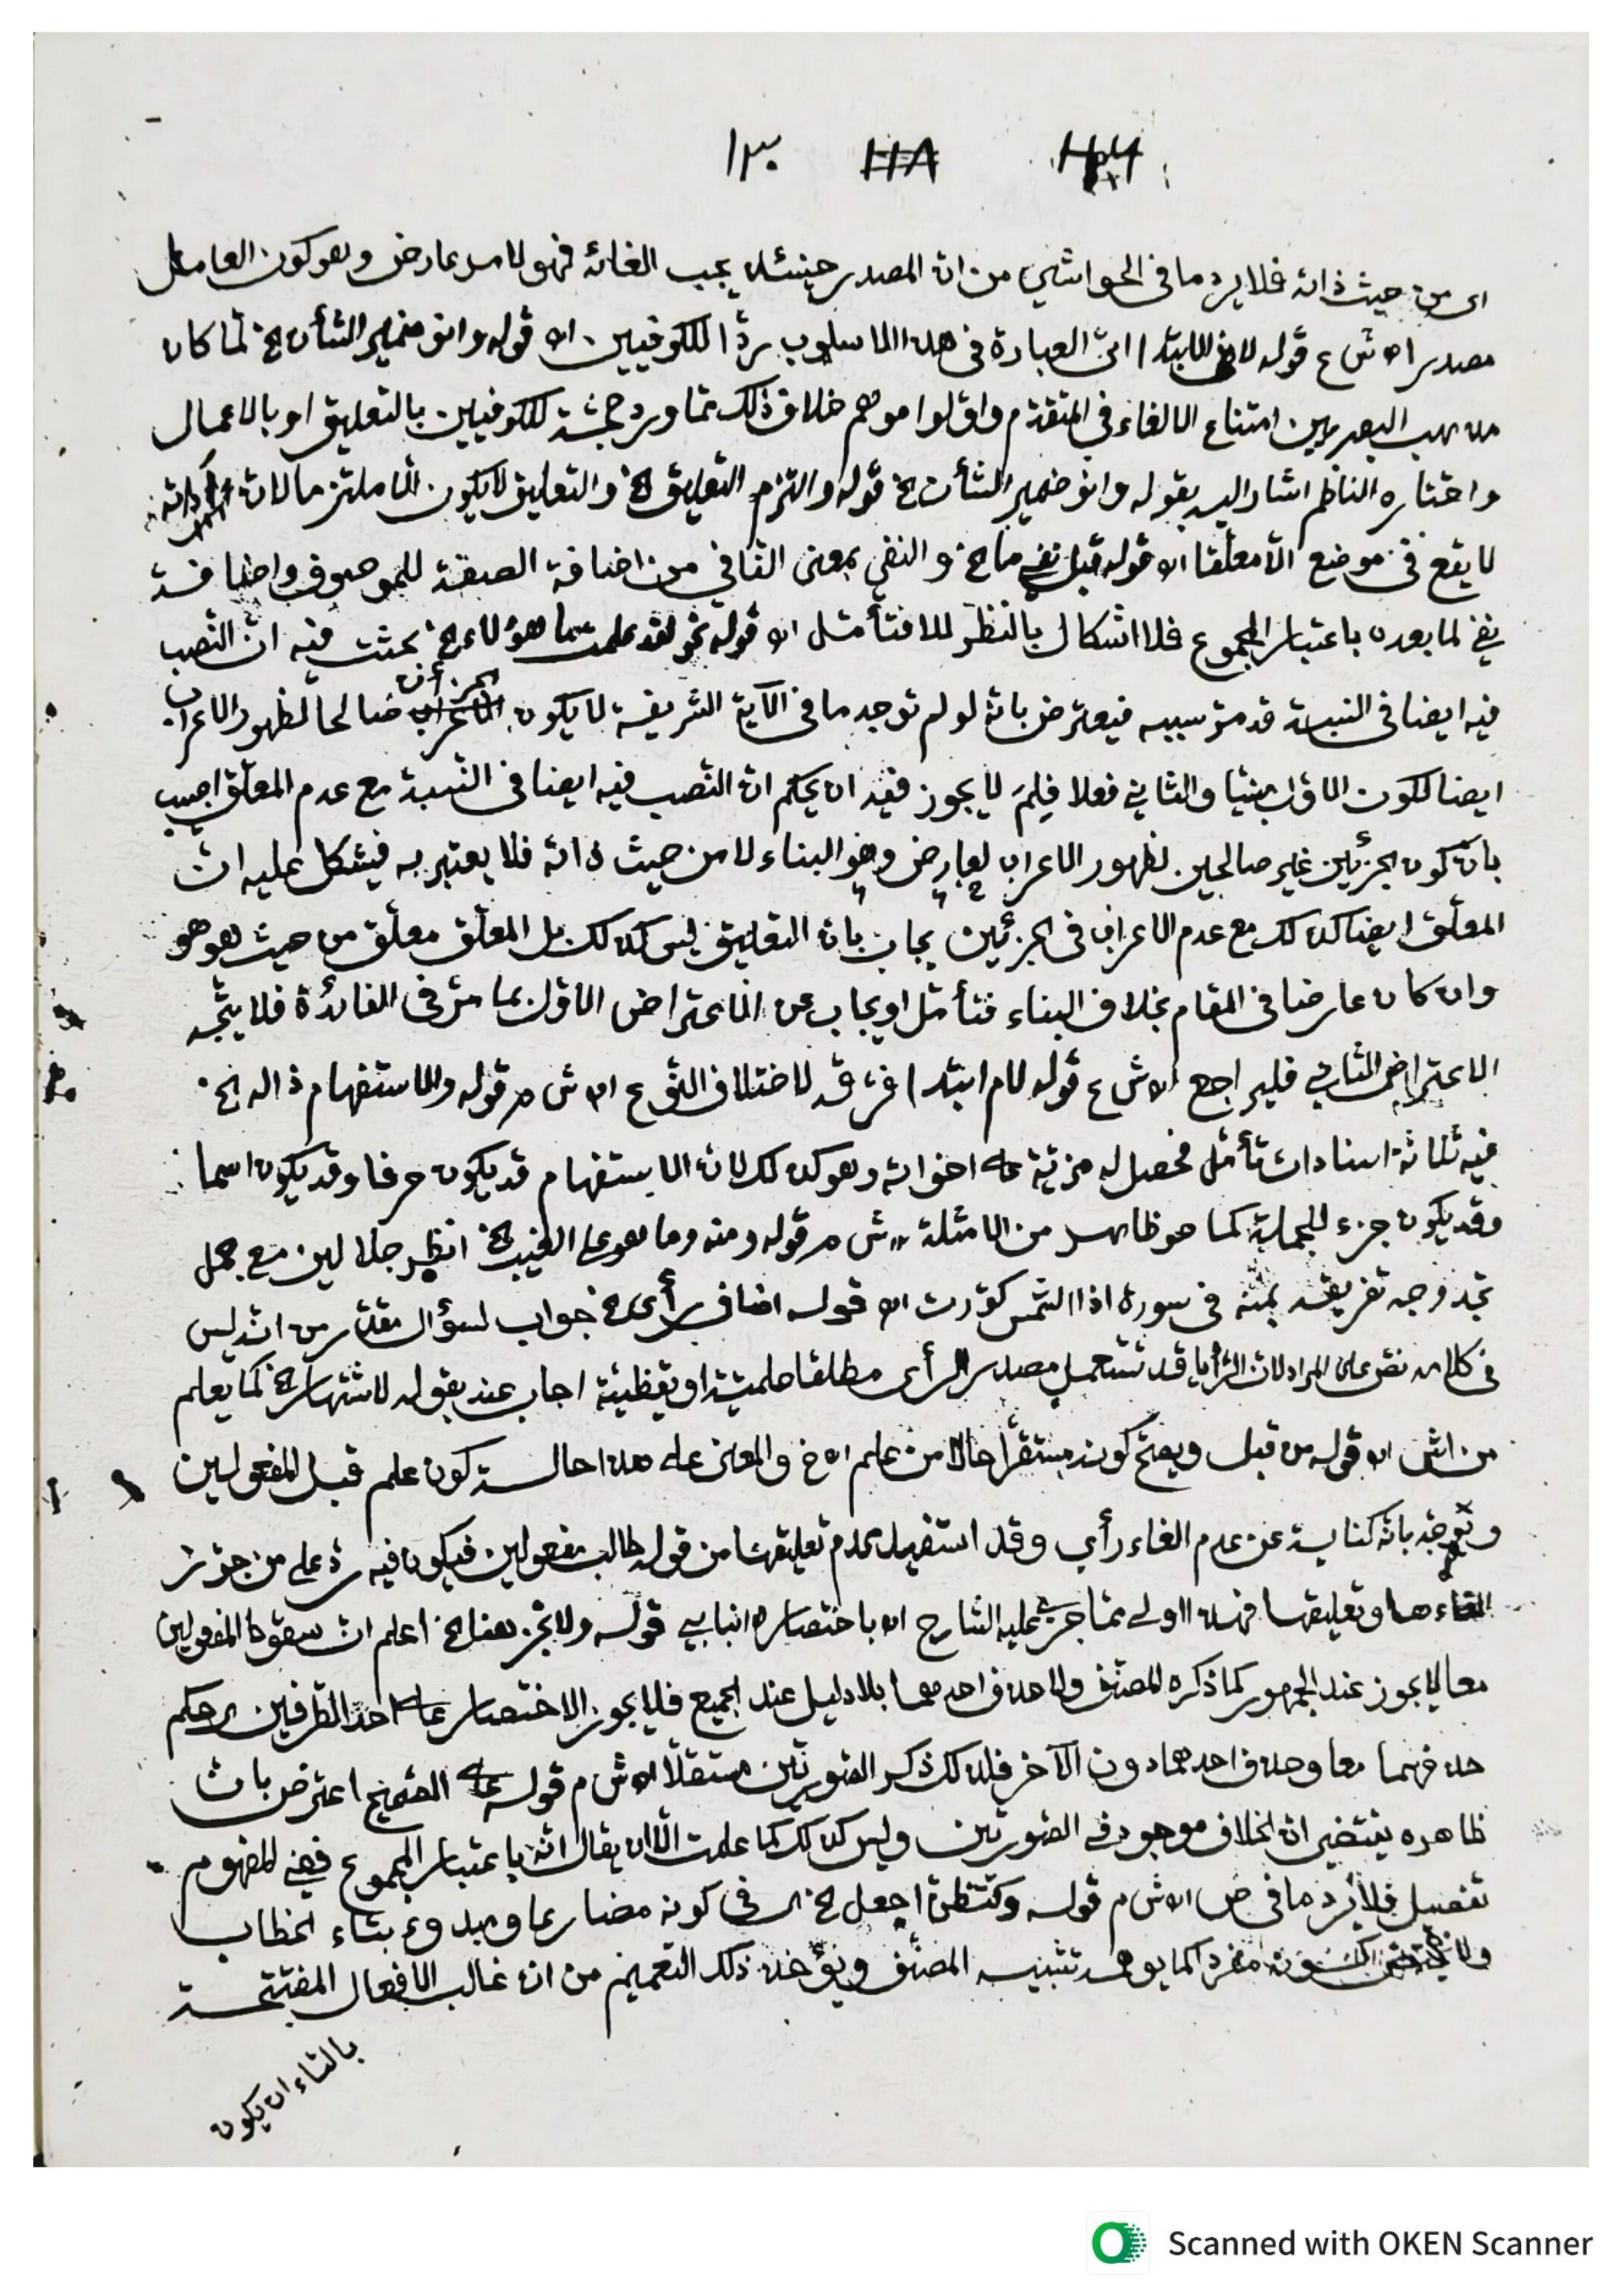 ١٣٠
اى من حيث ذاته فلا يرد ما فى الحواشي من ان المصدر حينئذ يجب الغائه فهو لامر عارض وهو كون العامل
مصدرا اه ش ع قوله لام ابتدا اتى العبارة فى هذا الاسلوب ردّا للكوفيين اه قوله وانو ضمير الشأن الخ لمّا كان
مذهب البصريين امتناع الالغاء فى المتقدم واوّلوا موهم خلاف ذلك ممّا ورد حجّة للكوفيين بالتعليق او بالاعمال
واختاره الناظم اشار اليه بقوله وانو ضمير الشأن الخ قوله والتزم التعليق الخ والتعليق لا يكون الّا ملتزما لانّ
لا يقع فى موضع الّا معلّقا اه قوله قبل نفي ما الخ والنفي بمعنى النافي من اضافة الصفة للموصوف واضافة
نفي لما بعده باعتبار المجموع فلا اشكال بالنظر للا فتأمّل اه قوله نحو لقد علمت ما هؤلاء الخ بحثت فيه انّ النصب
فيه ايضا فى النسبة قد مرّ سببه فيعترض بانّه لو لم توجد ما فى الآية الشريفة لا يكون الجزءان صالحا لظهور الاعراب
ايضا لكون الاوّل مبنيّا والثاني فعلا فلِمَ لا يجوز فيه ان يحكم انّ النصب فيه ايضا فى النسبة مع عدم المعلّق اجيب
بانّ كون الجزئين غير صالحين لظهور الاعراب لعارض وهو البناء لا من حيث ذاته فلا يعتبر به فيشكل عليه انّ
المعلّق ايضا كذلك مع عدم الاعراب فى الجزئين يجاب بان التعليق ليس كذلك بل المعلّق معلّق من حيث هو هو
وان كان عارضا فى المقام بخلاف البناء فتأمّل او يجاب عن الاعتراض الاوّل بما مرّ فى الفائدة فلا يتّجه
الاعتراض الثاني فليراجع اه ش ع قوله لام ابتدا الخ فرّقه لاختلاف النوع اه ش م قوله والاستفهام ذا له الخ
فيه ثلاثة اسنادات تأمّل فحصل له مزيّة على اخواته وهو كذلك لانّ الاستفهام قد يكون حرفا وقد يكون اسما
وقد يكون جزء للجملة كما هو ظاهر من الامثلة اه ش م قوله ومنه وما هو على الغيب الخ انظر جلالين مع جمل
تجد وجه تفريقه بمنه فى سورة اذا الشمس كوّرت اه قوله اضاف رأى الخ جواب لسؤال مقدّر من انّه ليس
فى كلامه نصّ على المراد لانّ الرّأيا قد تستعمل مصدر الرأى مطلقا حلميّة او يقظيّة اجاب عنه بقوله لاشتهار الخ كما يعلم
من اش اه قوله من قبل ويصحّ كونه مستقرّا حالا من علم اه خ والمعنى على هذا حالة كون علم قبل المفعولين
وتوجّه بانّه كناية عن عدم الغاء رأي وقد استفيد عدم تعليقها من قوله طالب مفعولين فيكون فيه ردّ على من جوّز
الغاءها وتعليقها فهذا اولى ممّا جرى عليه الشارح اه باختصار انبابي قوله ولا تجز هنا الخ اعلم انّ سقوط المفعولين
معا لا يجوز عند الجمهور كما ذكره المصنّف ولا حذف احدهما بلا دليل عند الجميع فلا يجوز الاختصار على احد الطرفين
حذفهما معا وحذف احدهما دون الآخر فلذلك ذكر الصورتين مستقلّا اه ش م قوله على الصّحيح اعترض بانّ
ظاهره يقتضي انّ الخلاف موجود فى الصورتين وليس كذلك كما علمت الّا ان يقال انّه باعتبار المجموع ففي المفهوم
تفصيل فلا يرد ما فى ص اه ش م قوله وكتظنّ اجعل الخ اى فى كونه مضارعا ومبدوء بتاء الخطاب
كما يوهمه تشبيه المصنّف ويؤخذ ذلك التعميم من انّ غالب الافعال المفتتحة
بالتاء ان يكون
Scanned with OKEN Scanner